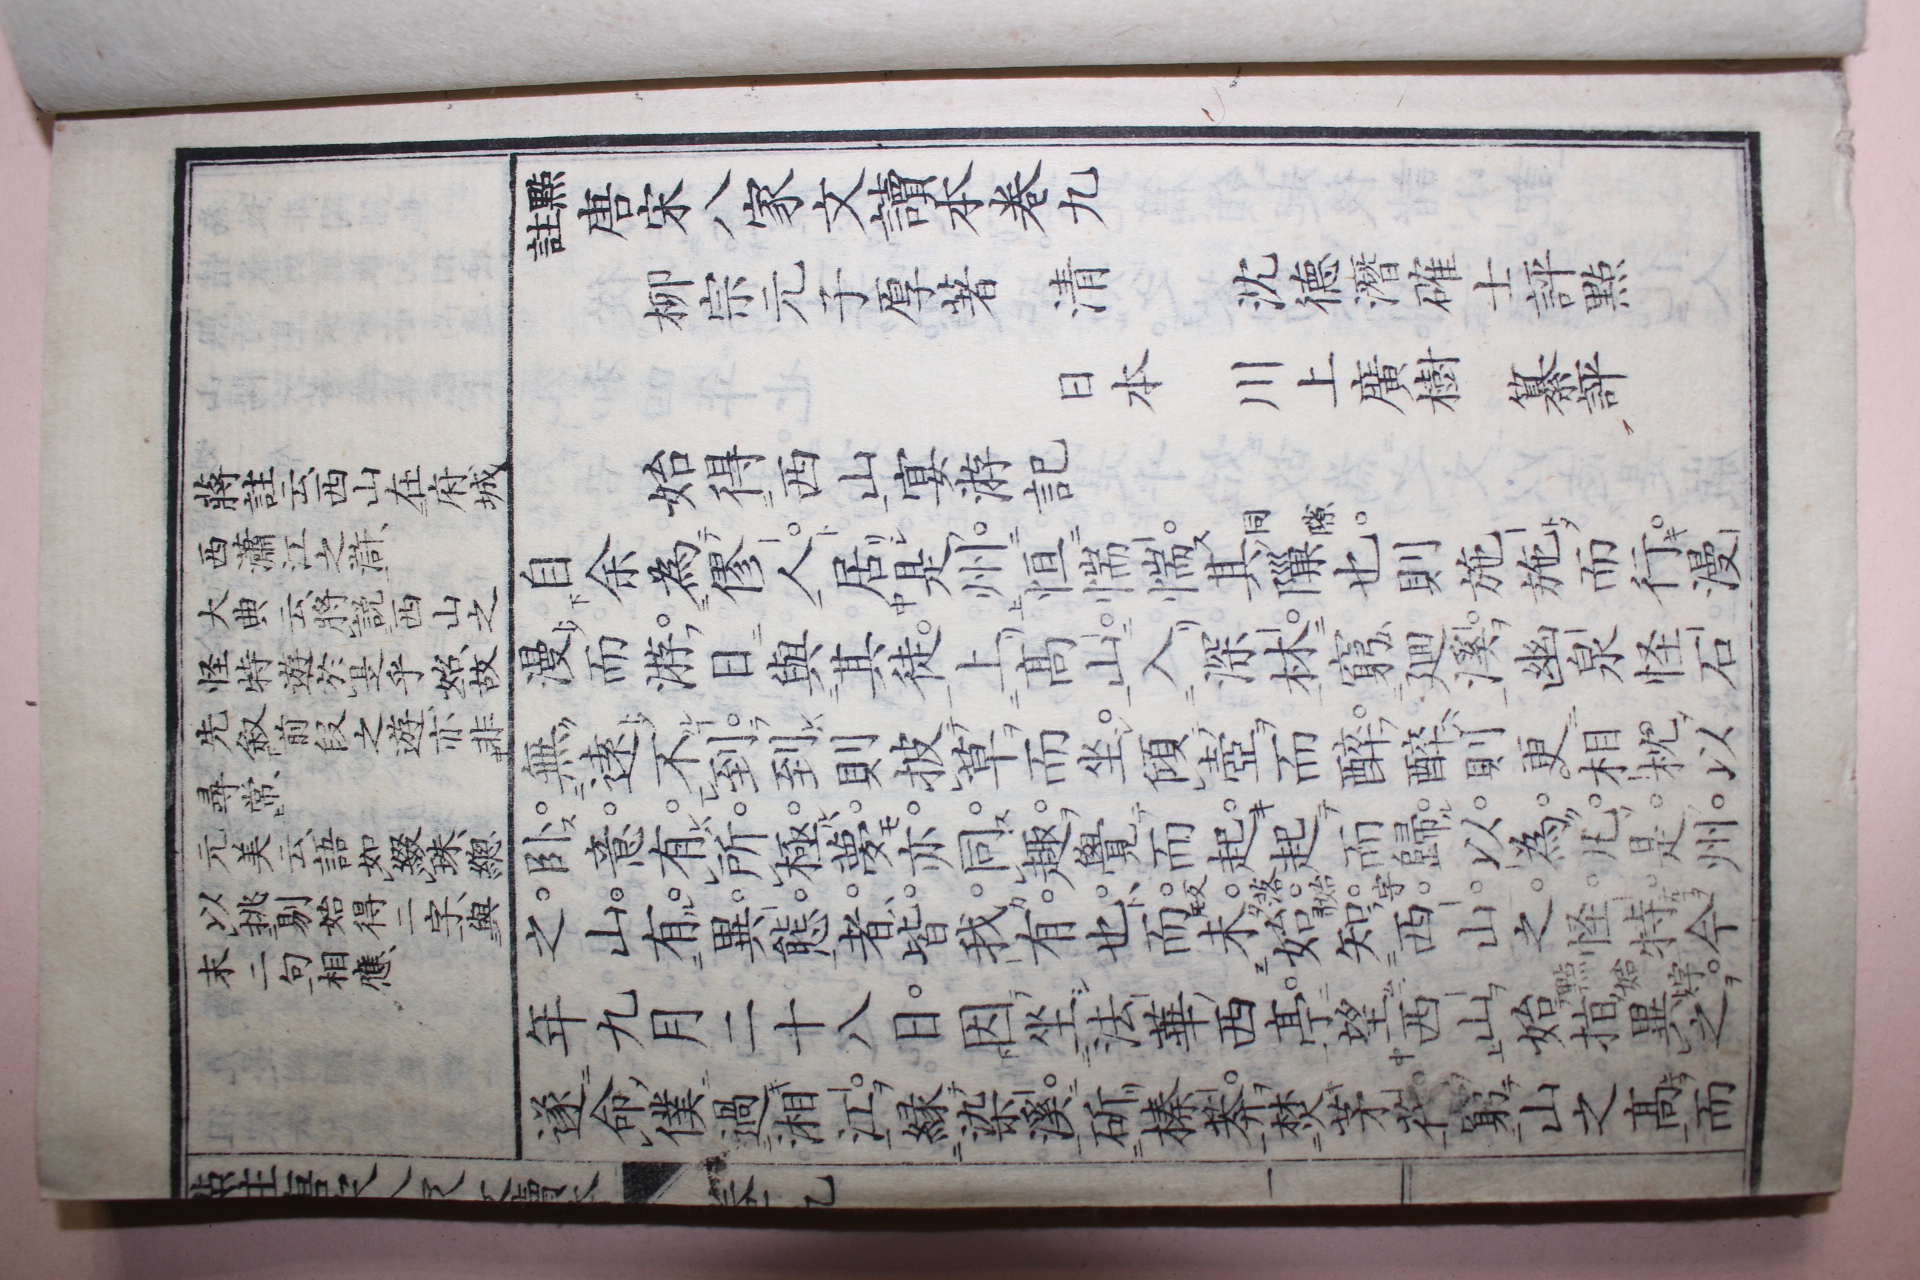 點註唐宋八家文讀本卷九
柳宗元子厚著　清　沈德潛確士評點
日本　川上廣樹　纂評
始得西山宴游記
自余為僇人居是州恒惴惴其隟也則施施而行漫
漫而游日與其徒上高山入深林窮迴溪幽泉怪石
無遠不到到則披草而坐傾壺而醉醉則更相枕以
卧意有所極夢亦同趣覺而起起而歸以為凡是州
之山有異態者皆我有也而未始知西山之怪特今
年九月二十八日因坐法華西亭望西山始指異之
遂命僕過湘江緣染溪斫榛莽焚茅茷窮山之高而
同隙
反落始字
點始字
蔣註云、西山在府城
西瀟江之滸、
大典云、將說西山之
怪特遊於是乎始、故
先叙前段之遊、亦非
尋常、
元美云、語如綴珠、總
以挑剔始得二字、與
末二句相應、
點註唐宋八家文讀本
卷九
一